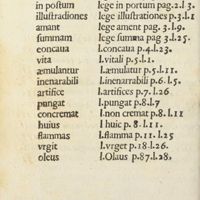 in postum lege in portum pag.2.l.3.
illustradiones lege illustrationes p.3.l.1
amant lege ament pag.3.l.9.
summam lege summa pag 3.l.25.
concaua l.concaua p.4.l.23.
vita l.vitali p.5.l.1.
æmulantur l.æmulatur p.5.l.11.
inenarabili l.inenarrabili p.6.l.5.
artifice l.artifices p.7.l.26
pungat l.pugnat p.8.l.7
concremat l.non cremat p.8.l.11
huius l huic p.8.l.11.
flammas l.flamma p.11.l.25
vrgit l.vrget p.18.l.26.
oleus l.Olaus p.87.l.28,